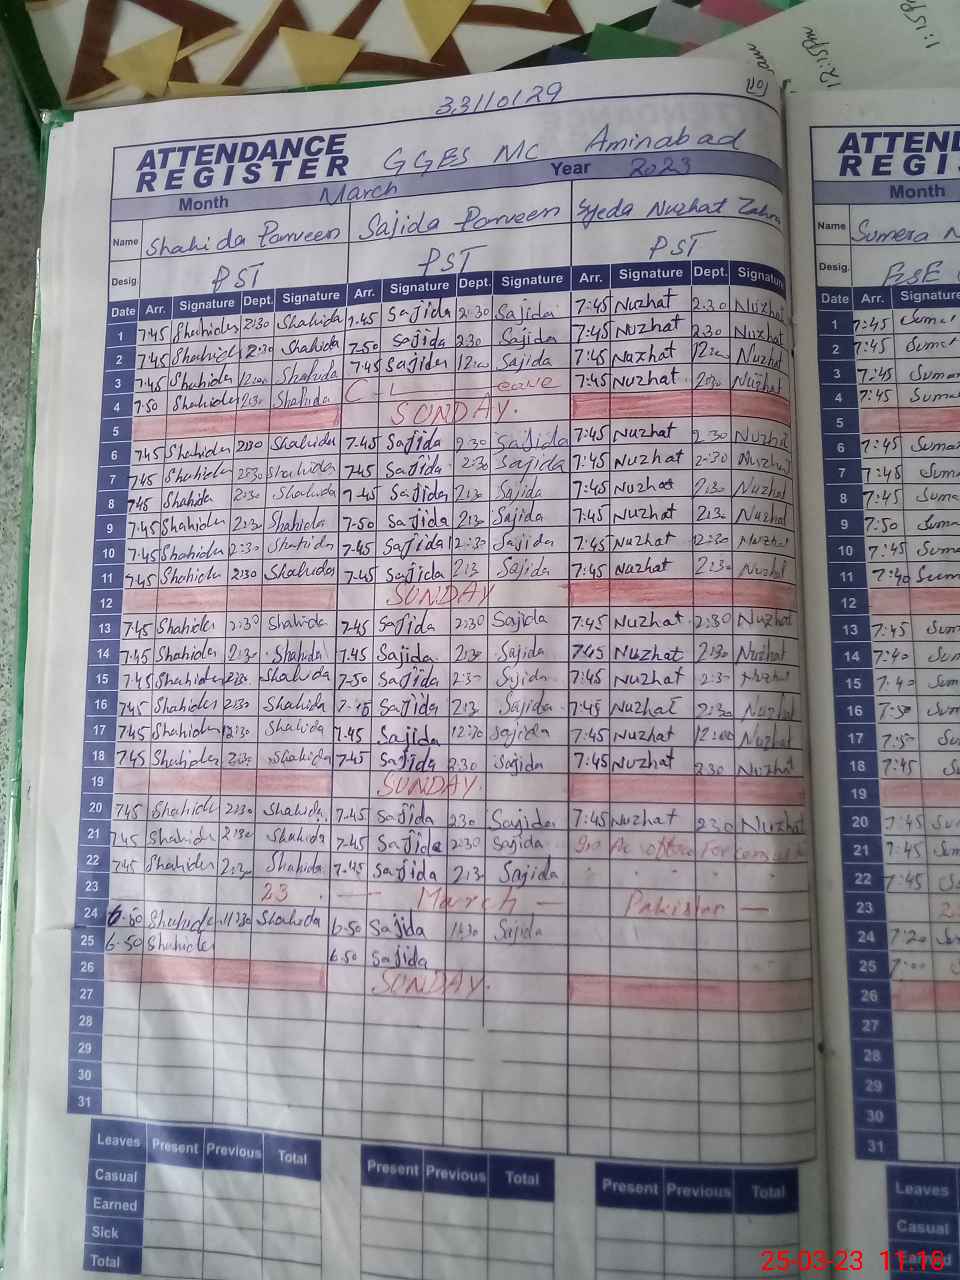 1:15P
12:15Pm
33110129
ATTENDANCE REGISTER GGES MC Aminabad
Month March Year 2023
Name Shahida Parveen Sajida Parveen Syeda Nuzhat Zahra
Desig. PST PST PST
Date Arr. Signature Dept. Signature Arr. Signature Dept. Signature Arr. Signature Dept. Signature
1 7:45 Shahida 2:30 Shahida 7:45 Sajida 2:30 Sajida 7:45 Nuzhat 2:30 Nuzhat
2 7:45 Shahida 2:30 Shahida 7-50 Sajida 2:30 Sajida 7:45 Nuzhat 2:30 Nuzhat
3 7:45 Shahida 12:00 Shahida 7:45 Sajida 12:00 Sajida 7:45 Nuzhat 12:00 Nuzhat
4 7:50 Shahida 2:30 Shahida C - L eave 7:45 Nuzhat 2:30 Nuzhat
5 SUNDAY.
6 7:45 Shahida 2:30 Shahida 7-45 Sajida 2:30 Sajida 7:45 Nuzhat 2:30 Nuzhat
7 7:45 Shahida 2:30 Shahida 7:45 Sajida 2:30 Sajida 7:45 Nuzhat 2:30 Nuzhat
8 7:45 Shahida 2:30 Shahida 7-45 Sajida 2:30 Sajida 7:45 Nuzhat 2:30 Nuzhat
9 7:45 Shahida 2:30 Shahida 7-50 Sajida 2:30 Sajida 7:45 Nuzhat 2:30 Nuzhat
10 7:45 Shahida 12:30 Shahida 7-45 Sajida 12:30 Sajida 7:45 Nuzhat 12:30 Nuzhat
11 7:45 Shahida 2:30 Shahida 7-45 Sajida 2:3 Sajida 7:45 Nuzhat 2:30 Nuzhat
12 SUNDAY
13 7:45 Shahida 2:30 Shahida 7-45 Sajida 2:30 Sajida 7:45 Nuzhat 2:30 Nuzhat
14 7:45 Shahida 2:30 Shahida 7.45 Sajida 2:30 Sajida 7:45 Nuzhat 2:30 Nuzhat
15 7:45 Shahida 2:30 Shahida 7-50 Sajida 2:30 Sajida 7:45 Nuzhat 2:30 Nuzhat
16 7:45 Shahida 2:30 Shahida Sajida 2:3 Sajida 7:45 Nuzhat 2:30 Nuzhat
17 7:45 Shahida 12:30 Shahida 7.45 Sajida 12:30 Sajida 7:45 Nuzhat 12:00 Nuzhat
18 7:45 Shahida 2:30 Shahida 7-45 Sajida 2:30 Sajida 7:45 Nuzhat 2:30 Nuzhat
19 SUNDAY.
20 7:45 Shahida 2:30 Shahida 7-45 Sajida 2:30 Sajida 7:45 Nuzhat 2:30 Nuzhat
21 7:45 Shahida 2:30 Shahida 7-45 Sajida 2:30 Sajida office For
22 7:45 Shahida 2:30 Shahida 7-45 Sajida 2:3 Sajida
23 23 - March - Pakistan -
24 6:50 Shahida 11:30 Shahida 6-50 Sajida 11:30 Sajida
25 6-50 Shahida 6.50 Sajida
26 SUNDAY.
27
28
29
30
31
Leaves Present Previous Total Present Previous Total Present Previous Total
Casual
Earned
Sick
Total
ATTEN
REGI
Month
Name Sumera N
Desig.
Date Arr. Signature
1 7:45
2 7:45
3 7:45 Suma
4 7:45 Suma
5
6 7:45 Suma
7 7:45 Suma
8 7:45 Suma
9 7:50 Suma
10 7:45 Suma
11 7:40 Sum
12
13 7:45 Sum
14 7:40 Sum
15 7:40 Sum
16 7:50 Sum
17 7:50
18 7:45 Su
19
20 7:45
21 7:45
22 7:45
23 2
24 7:20
25 7:00
26
27
28
29
30
31
Leaves
Casual
Earned
25-03-23 11:18